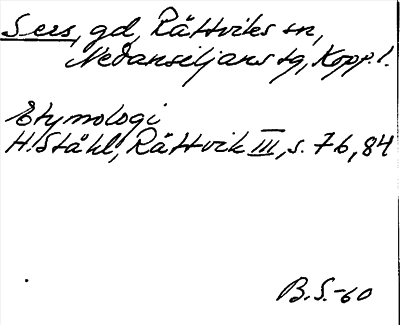 Sers, gd, Rättviks sn,
Nedansiljans tg, Kopp. l.
Etymologi
H. Ståhl, Rättvik III, s. 76, 84
B. S. -60